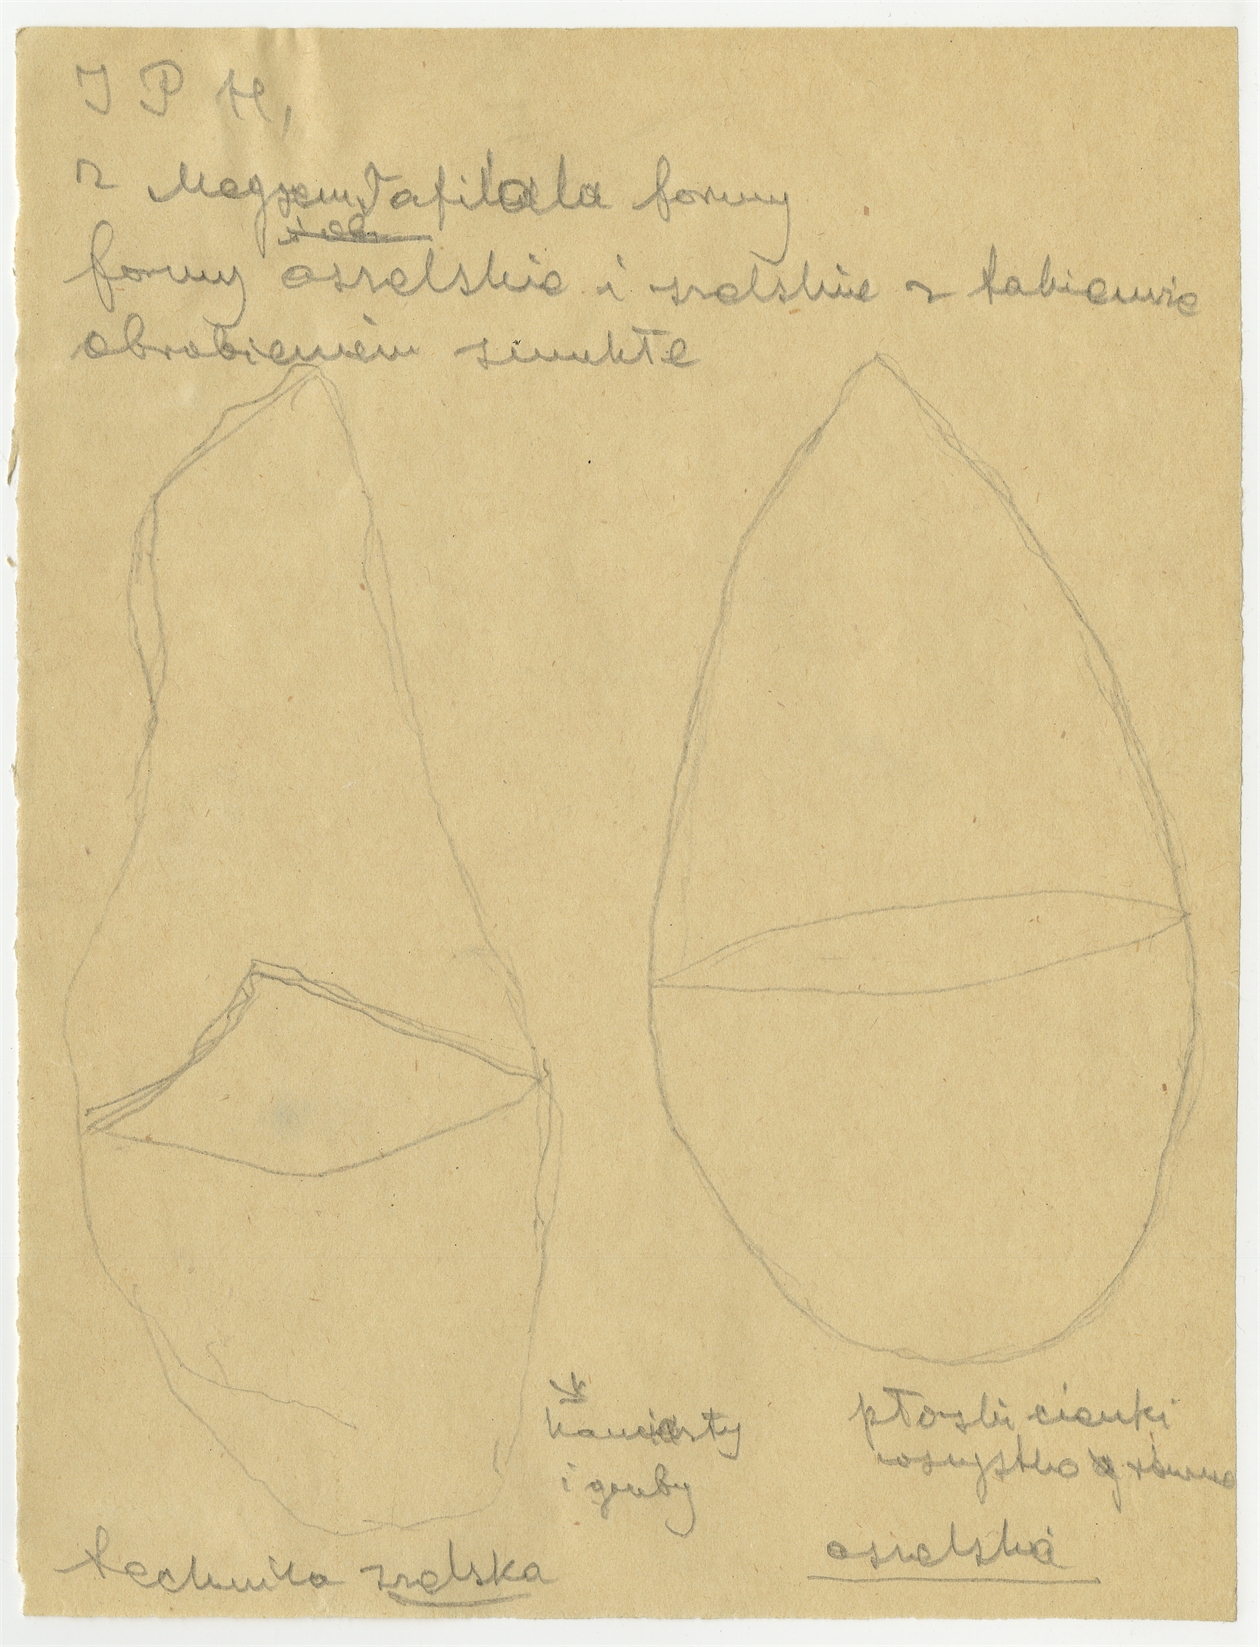 I P H,
z Tafilala formy
formy aszelskie i szelskie z takiemie
obrobieniem smukłe
kanciasty
i gruby
płaski cienki
wszystko równo
technika szelska
aszelska